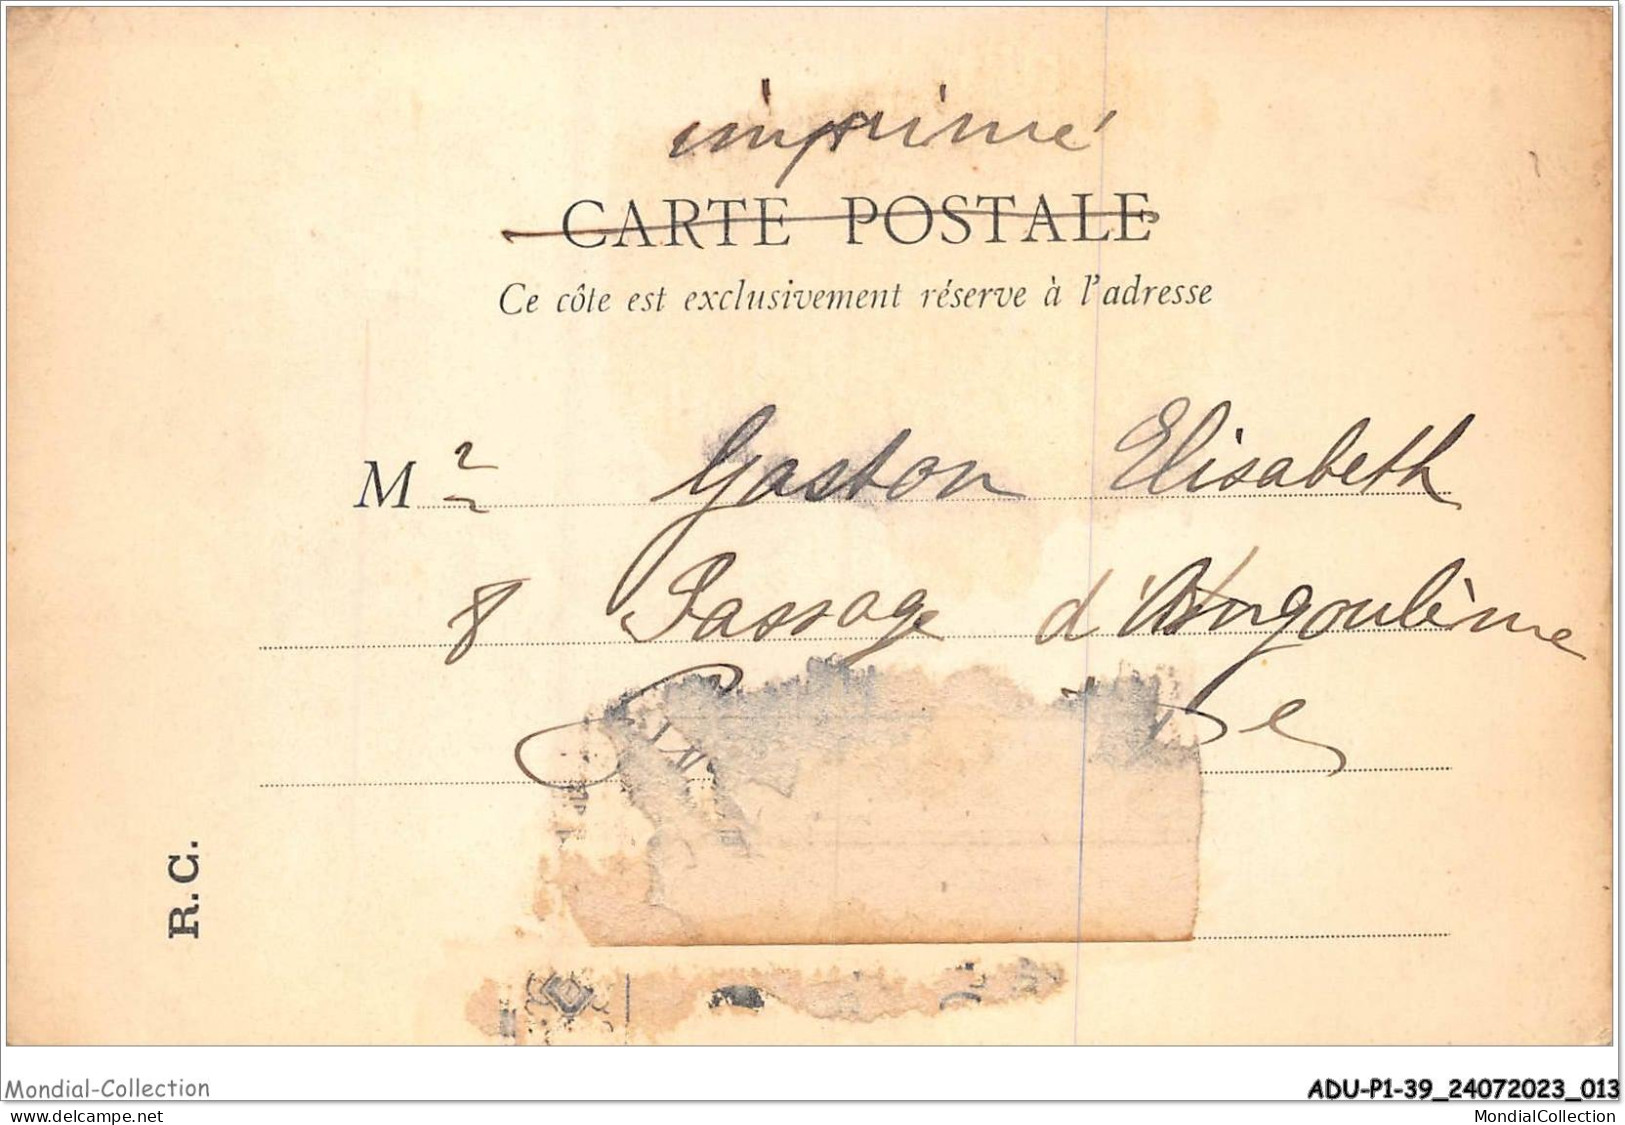 imprimé
CARTE POSTALE
Ce côte est exclusivement réserve à l'adresse
M r Gaston Elisabeth
8 Passage d'Angoulème
R. C.
Mondial-Collection
ADU-P1-39_24072023_013
www.delcampe.net
MondialCollection